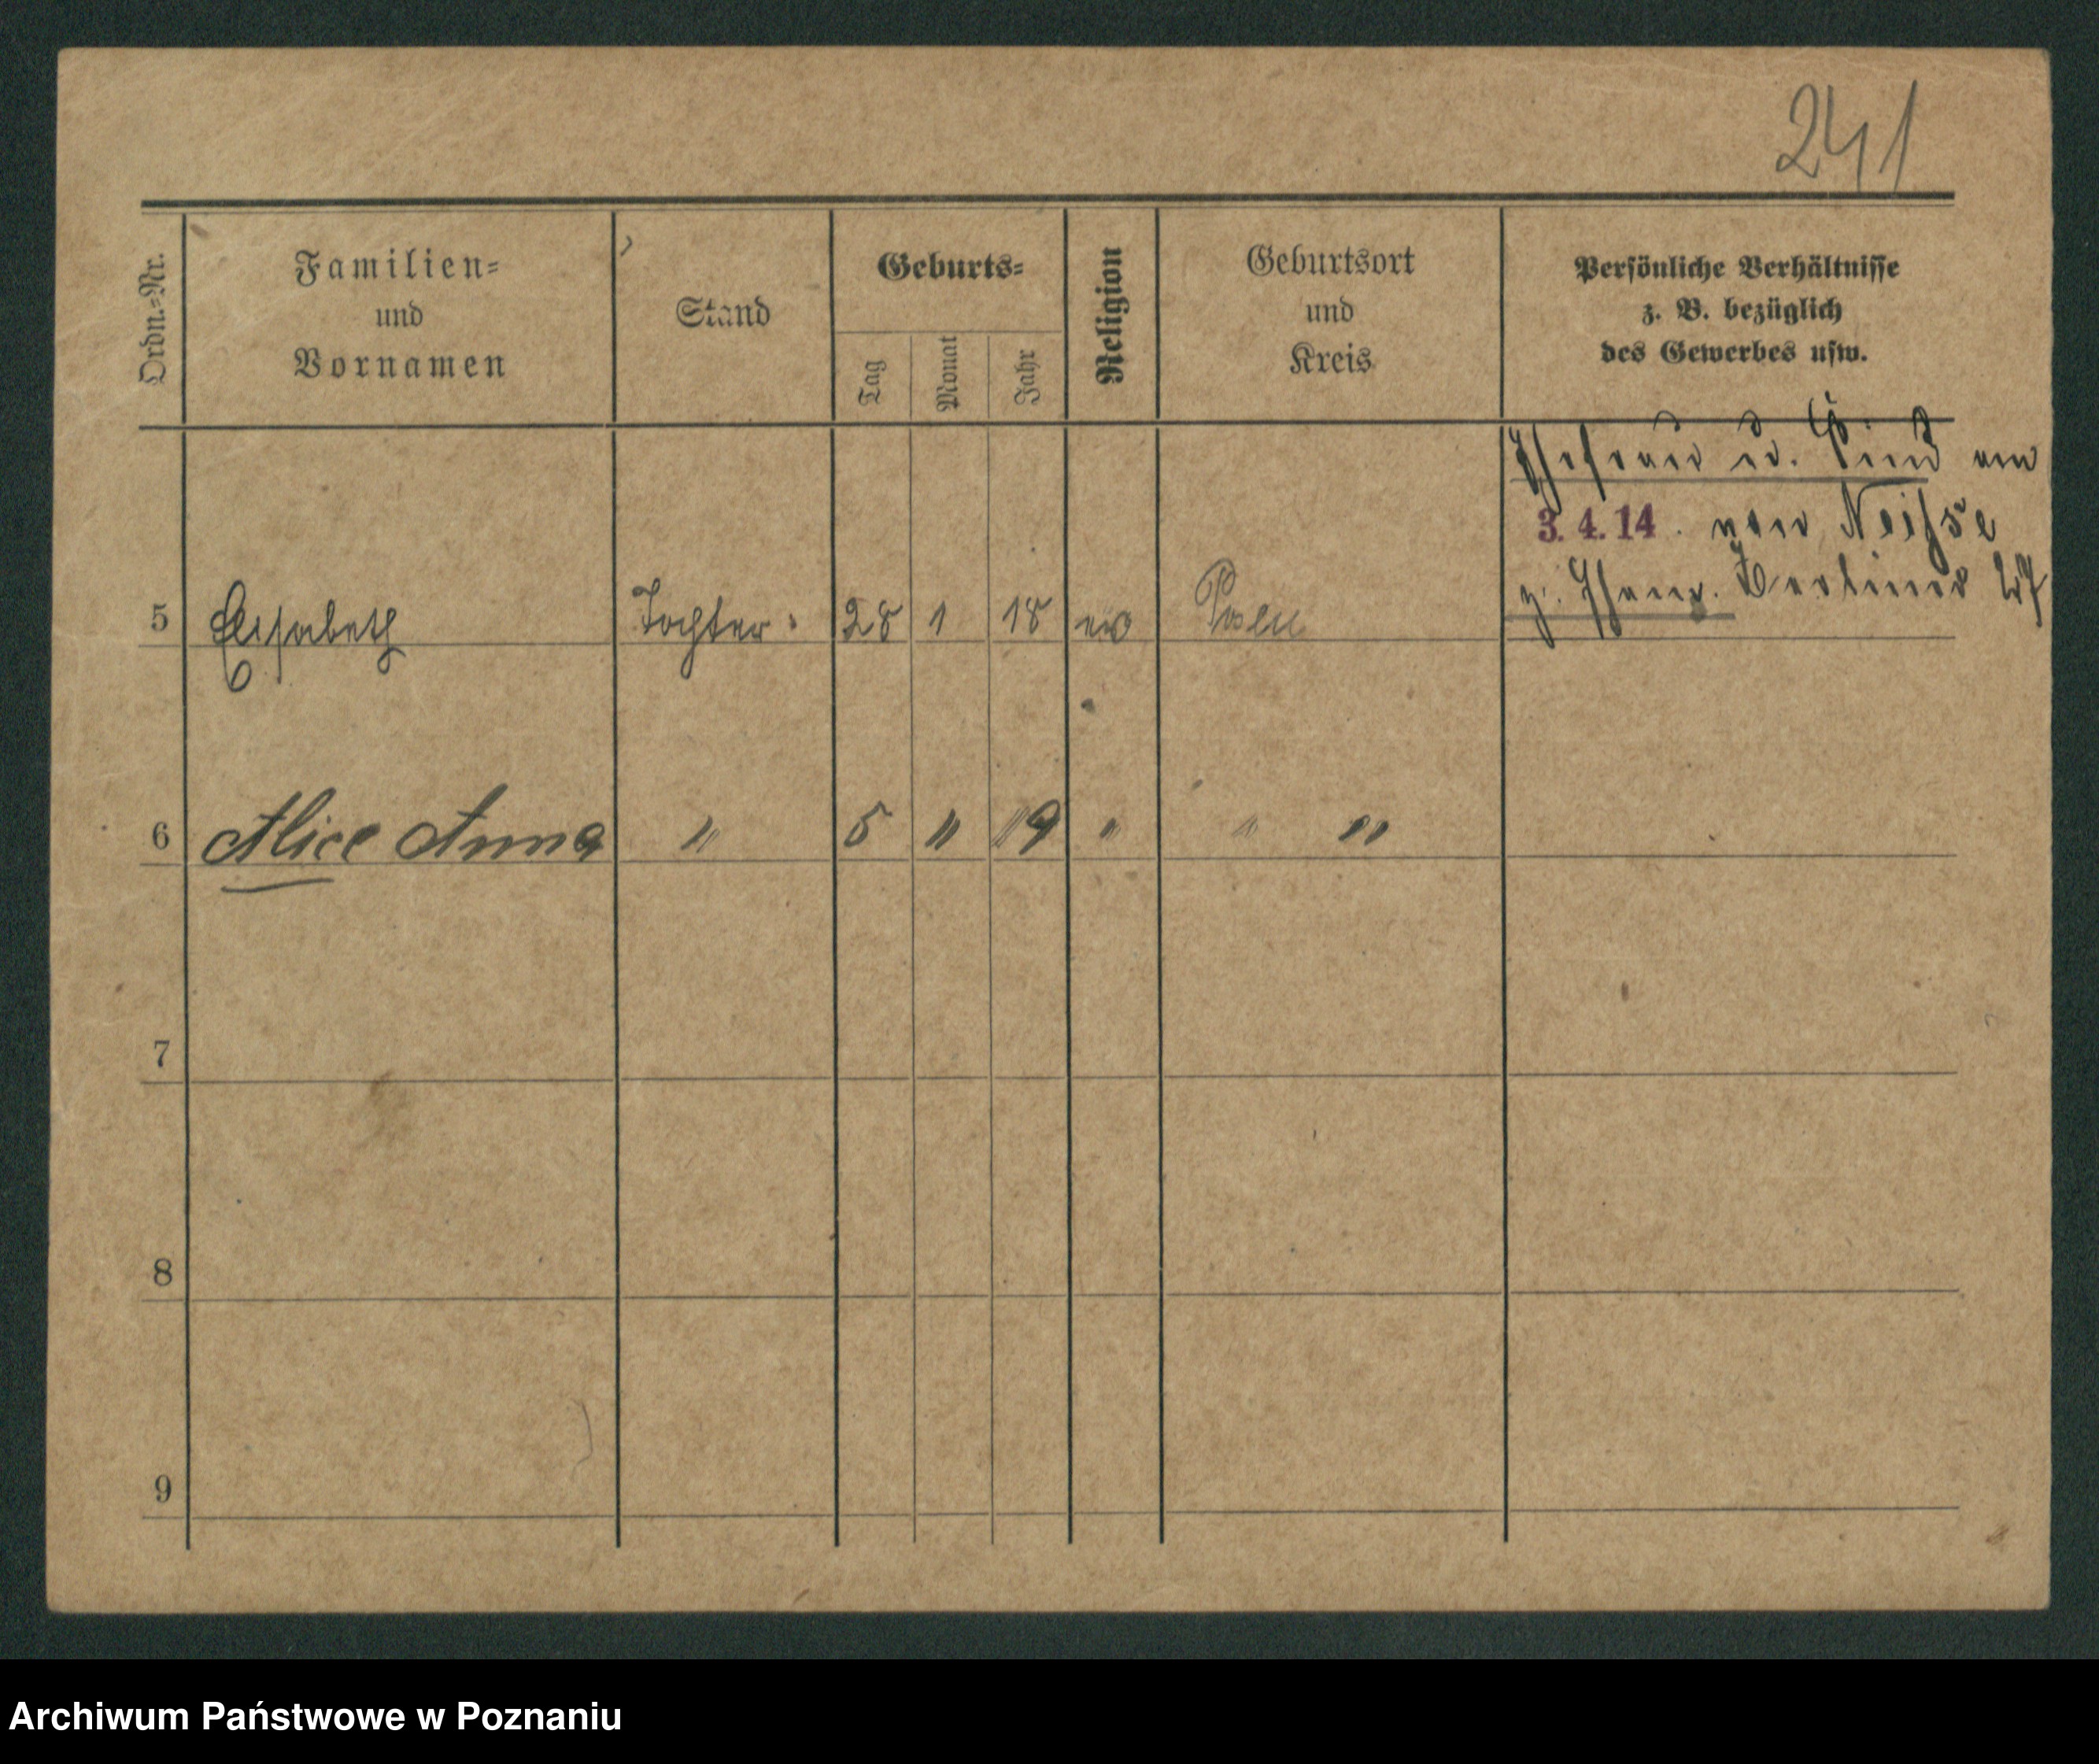 241
Ordn.-Nr.
Familien-
und
Vornamen
Stand
Geburts-
Tag
Monat
Jahr
Religion
Geburtsort
und
Kreis
Persönliche Verhältnisse
z. B. bezüglich
des Gewerbes usw.
Ehefrau u. Kind am
3. 4. 14. von Neisse
z. Ehem. Berliner
5 Elisabeth Tochter 28 1 18 ev Posen
6 Alice Anna " 5 " 19 " " "
7
8
9
Archiwum Państwowe w Poznaniu